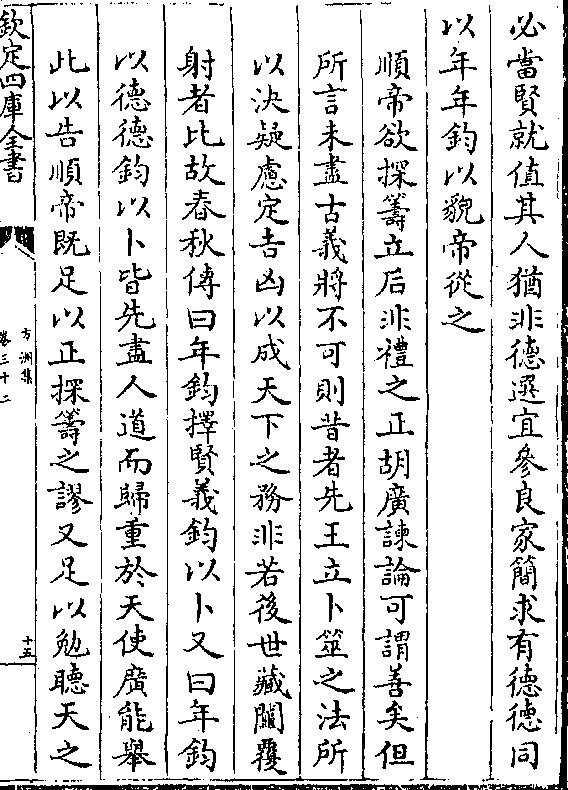 必當賢就值其人猶非德選宜參良家簡求有德德同
以年年鈞以貌帝從之
順帝欲探籌立后非禮之正胡廣諫論可謂善矣但
所言未盡古義將不可則昔者先王立卜筮之法所
以決疑慮定吉凶以成天下之務非若後世藏鬮覆
射者比故春秋傳曰年鈞擇賢義鈞以卜又曰年鈞
以德德鈞以卜皆先盡人道而歸重於天使廣能舉
此以告順帝既足以正探籌之謬又足以勉聽天之
欽定四庫全書
方洲集
卷三十二
十五